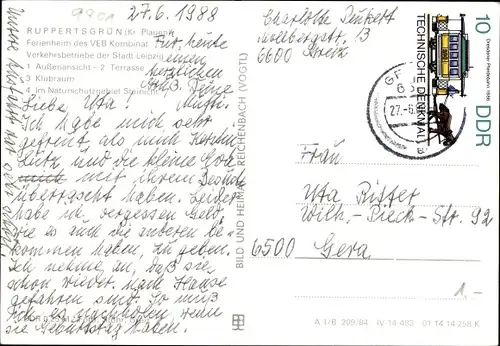 9901
27.6.1988
RUPPERTSGRÜN (Kr. Plauen)
Ferienheim des VEB Kombinat
Verkehrsbetriebe der Stadt Leipzig
1 Außenansicht – 2 Terrasse
3 Klubraum
4 Im Naturschutzgebiet Steinicht
Für heute
einen
herzlichen
Gruß, Deine
Mutti.
Liebe Uta!
Ich habe mich sehr
gefreut, als mich
Lutz, und die kleine
mit ihrem Besuch
überrascht haben. Leider
habe ich vergessen Geld,
wie es auch die anderen be-
kommen haben, zu geben.
Ich nehme an, daß sie
schon wieder nach Hause
gefahren sind. So muß
ich es nachholen, wenn
sie Geburtstag haben.
BILD UND HEIMAT REICHENBACH (VOGTL)
Charlotte
13
6600 Greiz
10
Dresdener Pferdebahn 1886
TECHNISCHE DENKMALE
DDR
27.-6.
Frau
Uta Ritter
Wilh.-Pieck-Str. 92
6500 Gera
1.-
A 1/B 209/84 IV-14-483 01 14 14 258 K